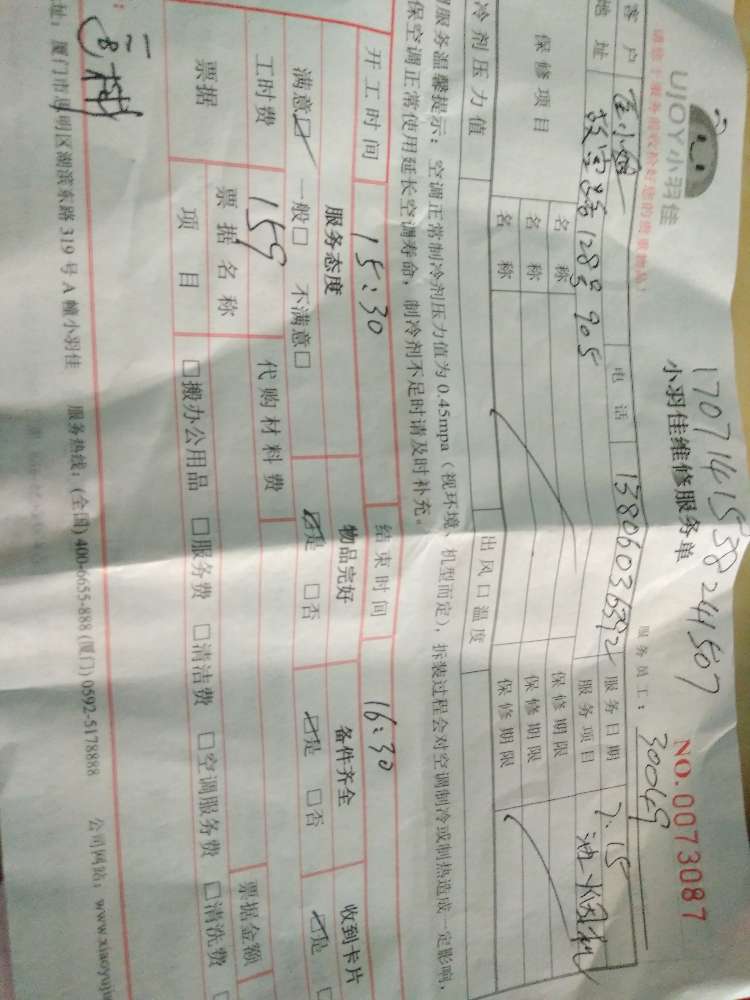 UJOY小羽佳
请您于服务前收捡好您的贵重物品!
1707141538241507
小羽佳维修服务单
NO.0073087
服务员工: 300469
客户 电话 13806036392 服务日期 7.15
地址 128号905 服务项目 油烟机
保修项目 名称 保修期限
名称 保修期限
名称 保修期限
冷剂压力值 出风口温度
服务温馨提示:空调正常制冷剂压力值为0.45mpa(视环境、机型而定),拆装过程会对空调制冷或制热造成一定影响,
保空调正常使用延长空调寿命,制冷剂不足时请及时补充。
开工时间 15:30 结束时间 16:30
服务态度 物品完好 备件齐全 收到卡片
满意☑ 一般□ 不满意□ ☑是 □否 ☑是 □否 ☑是
工时费 159 代购材料费
票据 票据名称 票据金额
项目 □搬办公用品 □服务费 □清洁费 □空调服务费 □清洗费
址:厦门市思明区湖滨东路319号A幢小羽佳 服务热线:(全国)400-6655-888(厦门)0592-5178888 公司网站:www.xiaoyuji